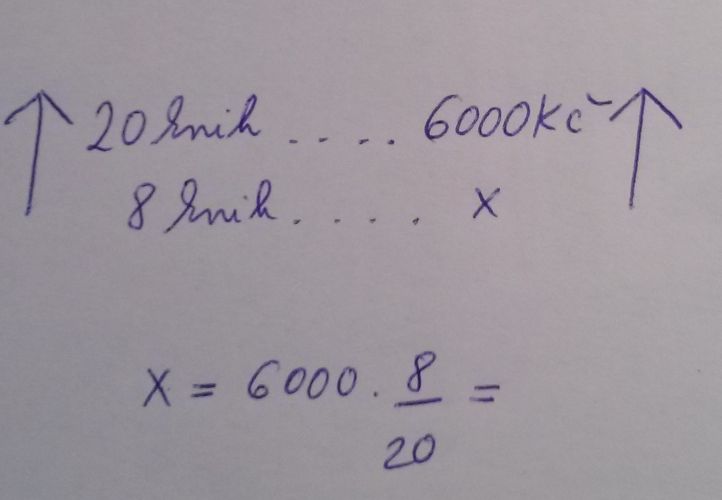 20 knih .... 6000Kč
8 knih.... x
x = 6000 . 8/20 =